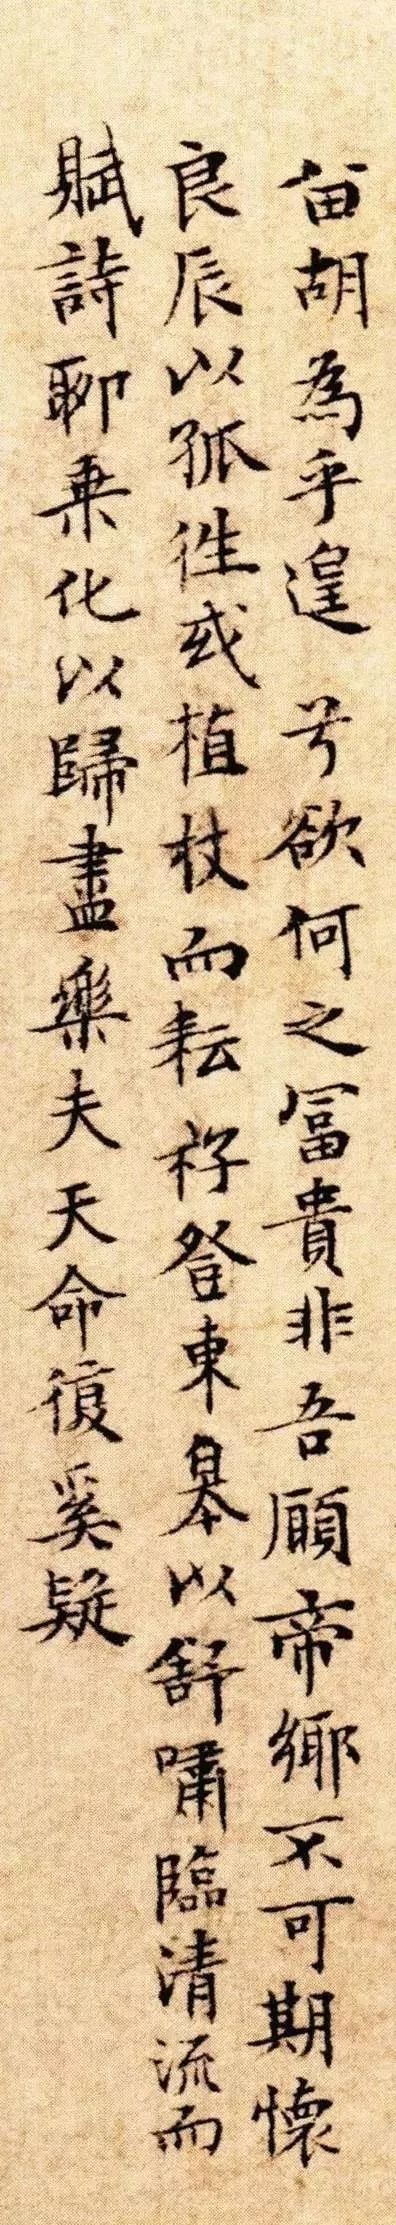 留胡為乎遑兮欲何之冨貴非吾願帝鄉不可期懷
良辰以孤往或植杖而耘耔登東皋以舒嘯臨清流而
賦詩聊乘化以歸盡樂夫天命復奚疑